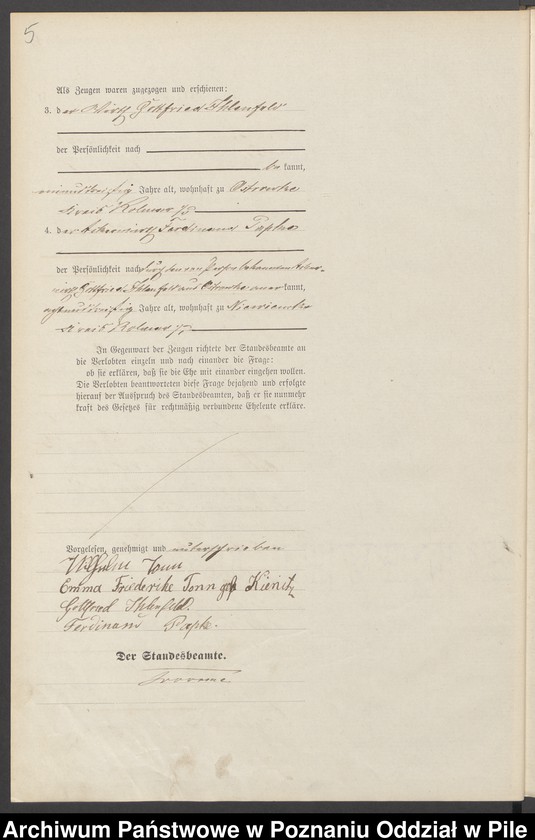 5
Als Zeugen waren zugezogen und erschienen:
3. der Wirth Gottfried Ihlenfeld
der Persönlichkeit nach
be kannt,
Jahre alt, wohnhaft zu Ostrowke
Kreis Kolmar i/P
4. der Ackerwirth Ferdinand Papke
der Persönlichkeit nach durch den von Person bekannten Acker-
wirth Gottfried Ihlenfeld aus Ostrowke anerkannt,
Jahre alt, wohnhaft zu
Kreis Kolmar i/P
In Gegenwart der Zeugen richtete der Standesbeamte an
die Verlobten einzeln und nach einander die Frage:
ob sie erklären, daß sie die Ehe mit einander eingehen wollen.
Die Verlobten beantworteten diese Frage bejahend und erfolgte
hierauf der Ausspruch des Standesbeamten, daß er sie nunmehr
kraft des Gesetzes für rechtmäßig verbundene Eheleute erkläre.
Vorgelesen, genehmigt und unterschrieben
Wilhelm Tonn
Emma Friederike Tonn geb Kienitz
Gottfried Ihlenfeld.
Ferdinand Papke.
Der Standesbeamte.
Archiwum Państwowe w Poznaniu Oddział w Pile